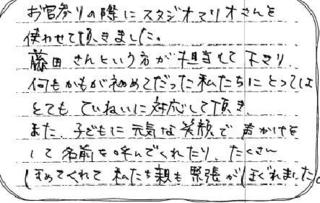 お宮参りの際にスタジオマリオさんを
使わせて頂きました。
藤田さんという方が担当して下さり
何もかもが初めてだった私たちにとっては
とてもていねいに対応して頂き
また、子どもに元気な笑顔で声かけを
して名前を呼んでくれたり、たくさん
ほめてくれて私たち親も緊張がほぐれました。